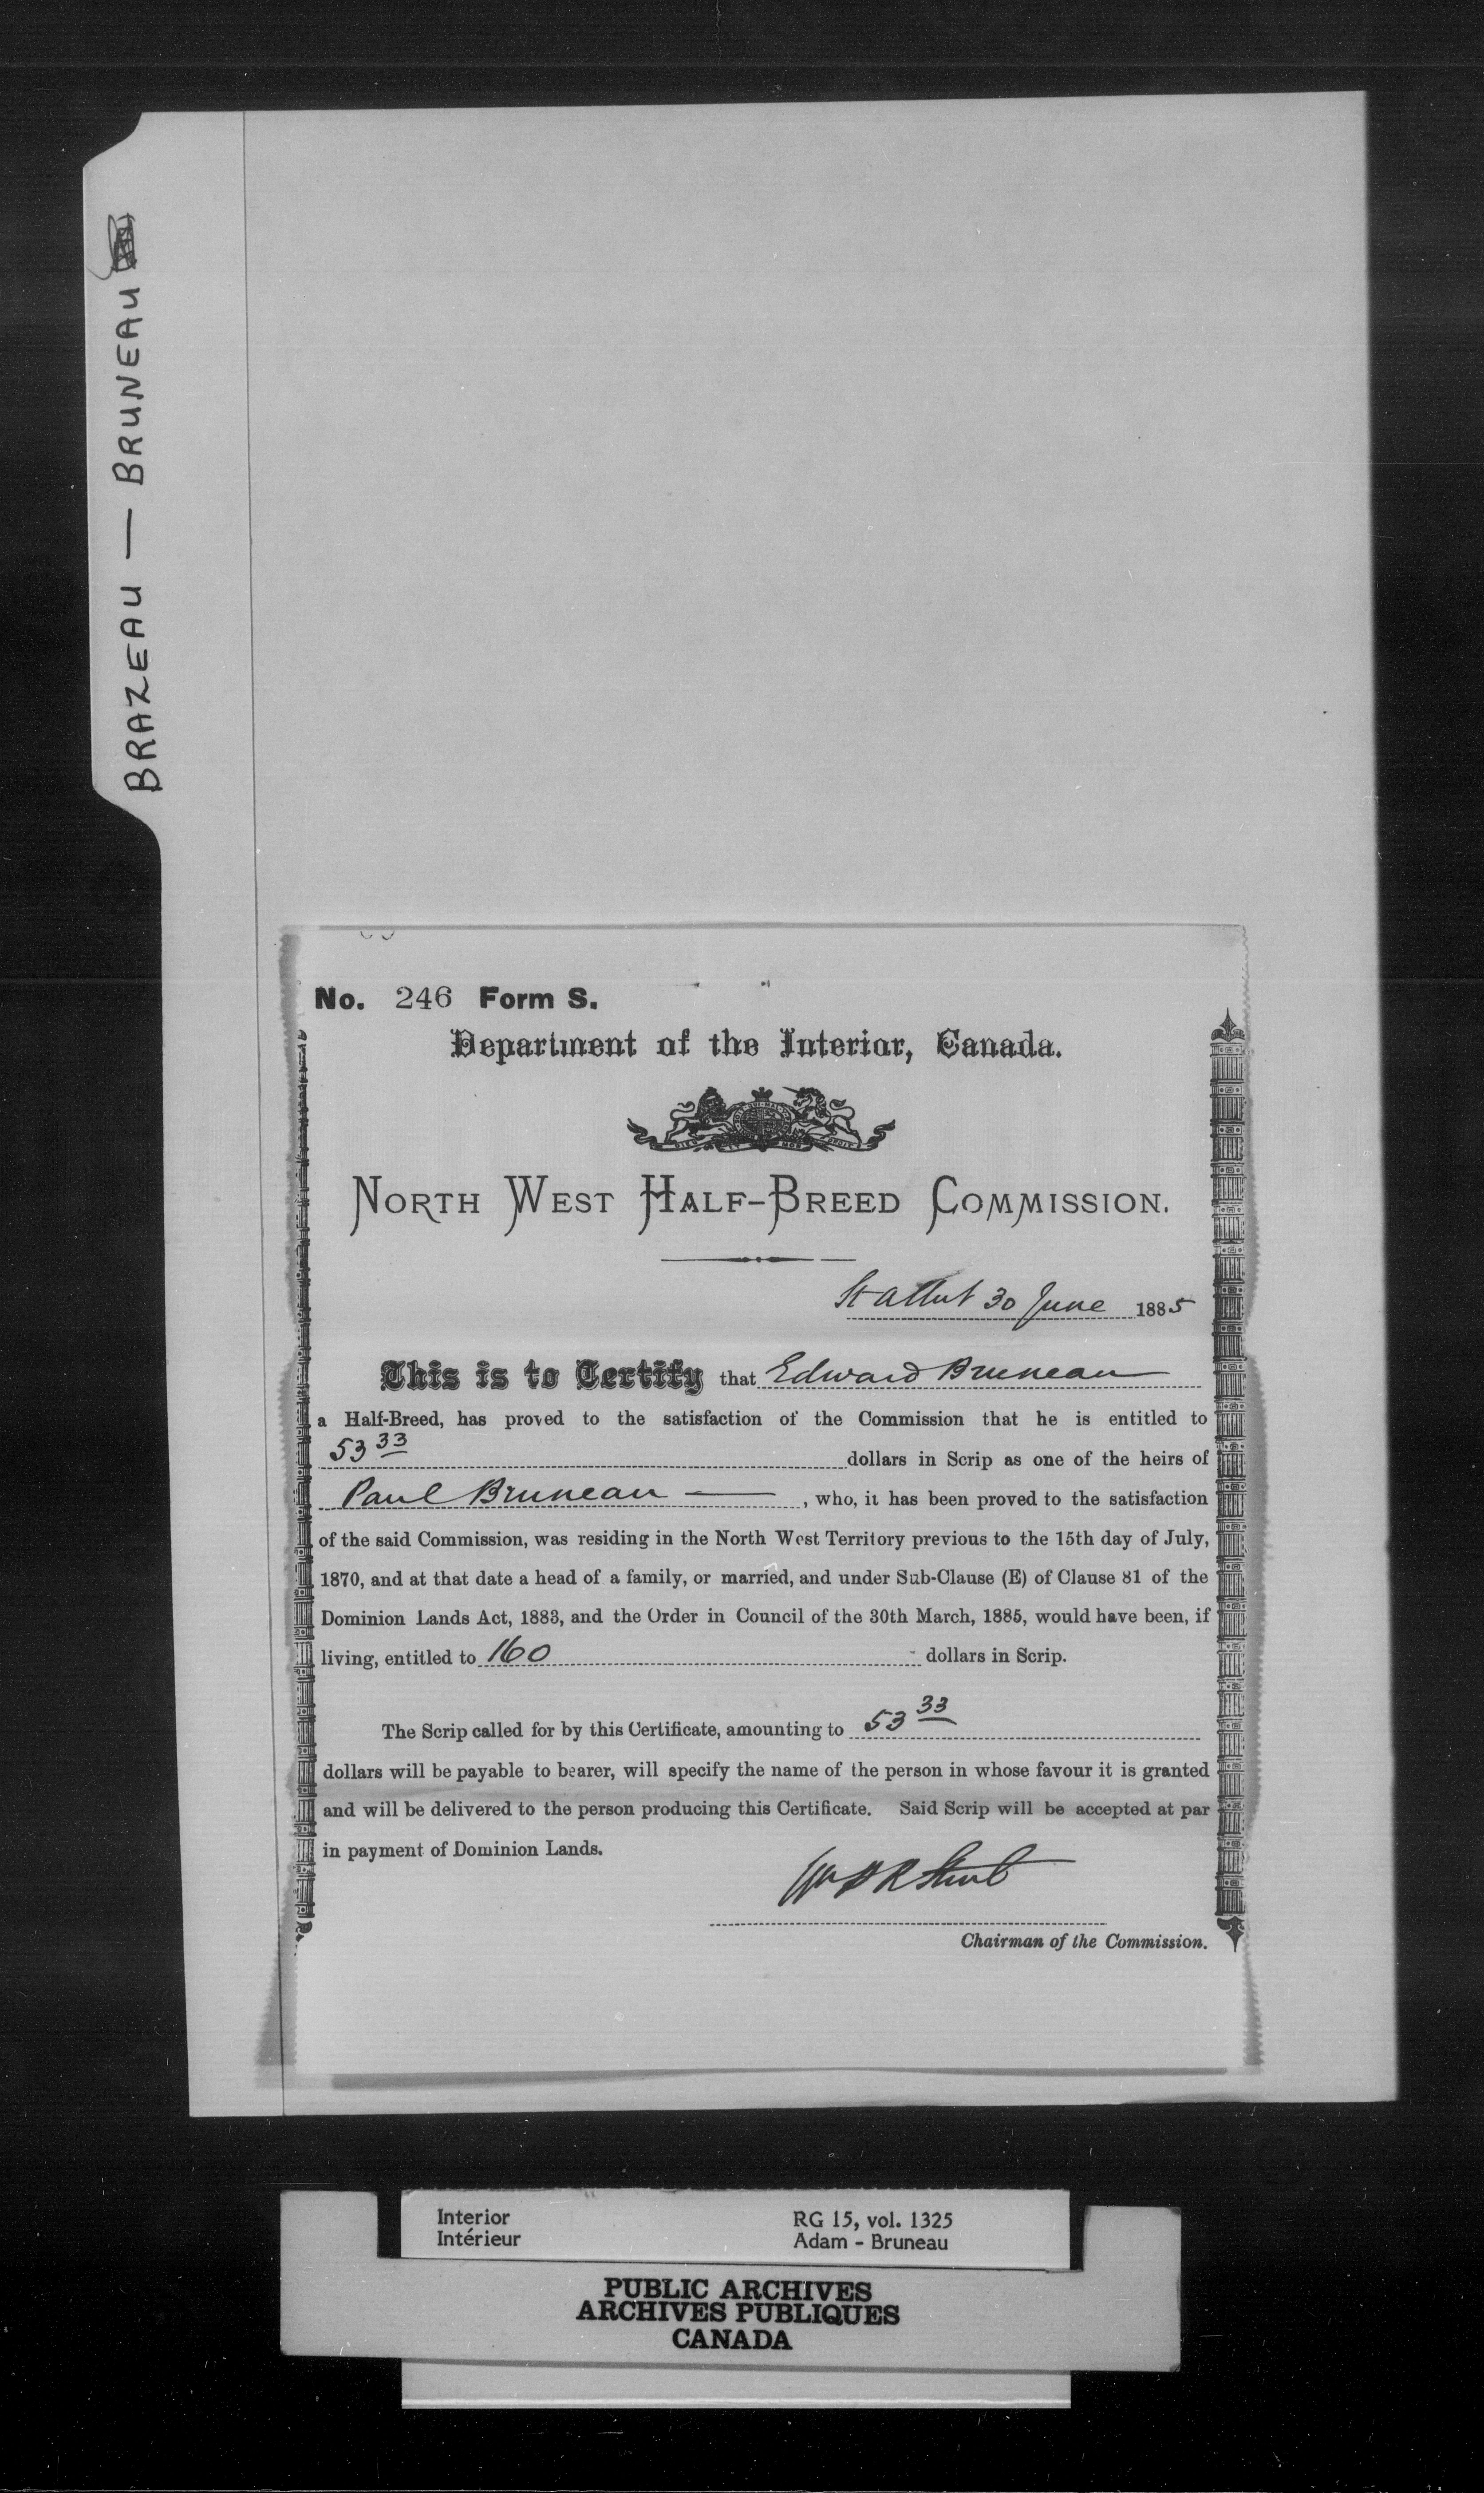 BRAZEAU — BRUNEAU
No. 246 Form S.
Department of the Interior, Canada.
NORTH WEST HALF-BREED COMMISSION.
St Albert 30 June 1885
This is to Certify that Edward Bruneau
a Half-Breed, has proved to the satisfaction of the Commission that he is entitled to
53 33 dollars in Scrip as one of the heirs of
Paul Bruneau —, who, it has been proved to the satisfaction
of the said Commission, was residing in the North West Territory previous to the 15th day of July,
1870, and at that date a head of a family, or married, and under Sub-Clause (E) of Clause 81 of the
Dominion Lands Act, 1883, and the Order in Council of the 30th March, 1885, would have been, if
living, entitled to 160 dollars in Scrip.
The Scrip called for by this Certificate, amounting to 53 33
dollars will be payable to bearer, will specify the name of the person in whose favour it is granted
and will be delivered to the person producing this Certificate. Said Scrip will be accepted at par
in payment of Dominion Lands.
Chairman of the Commission.
Interior RG 15, vol. 1325
Intérieur Adam - Bruneau
PUBLIC ARCHIVES
ARCHIVES PUBLIQUES
CANADA